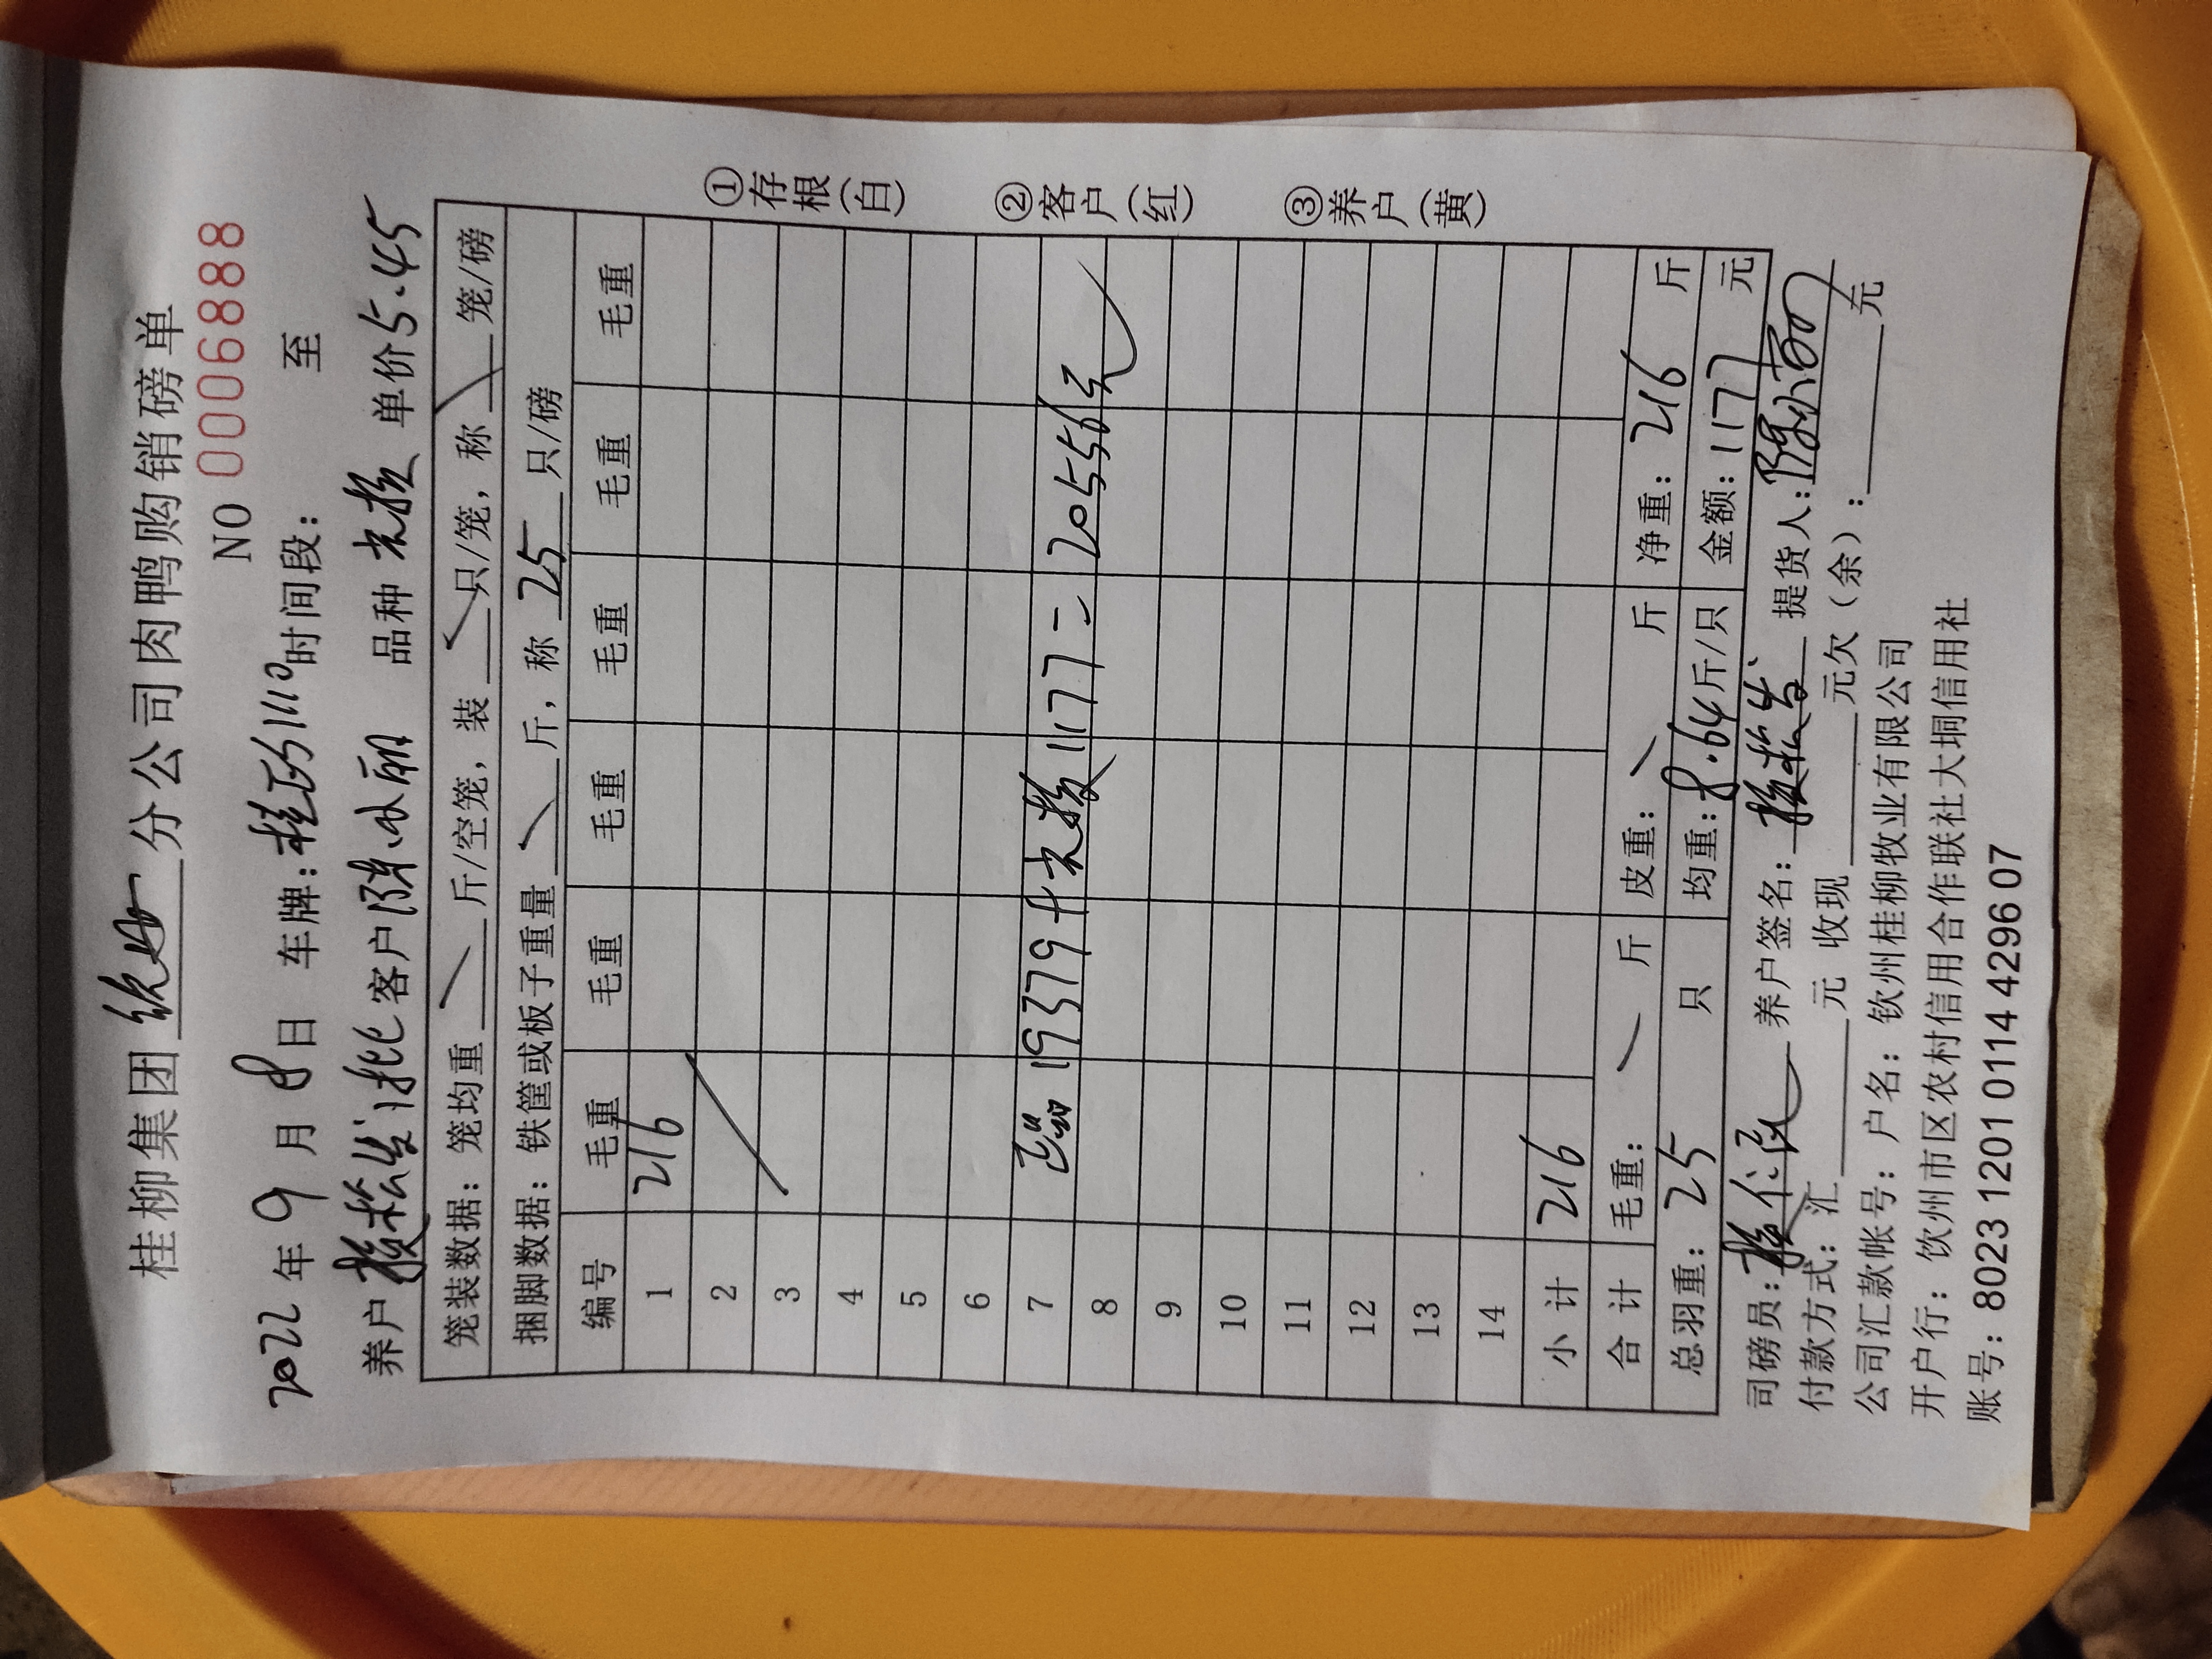 桂柳集团 钦州 分公司肉鸭购销磅单
NO 0006888
2022 年 9 月 8 日 车牌: 时间段: 至
养户 批 客户 陈小丽 品种 单价 5.45
笼装数据: 笼均重 斤/空笼, 装 只/笼, 称 笼/磅
捆脚数据: 铁筐或板子重量 斤, 称 25 只/磅
编号 毛重 毛重 毛重 毛重 毛重 毛重
1 216
2
3
4
5
6
7 19379+ 1177=20556元
8
9
10
11
12
13
14
小 计 216
合 计 毛重: 斤 皮重: 斤 净重: 216 斤
总羽重: 25 只 均重: 8.64 斤/只 金额: 1177 元
司磅员: 养户签名: 提货人:
付款方式: 汇 元 收现 元欠(余): 元
公司汇款帐号: 户名: 钦州桂柳牧业有限公司
开户行: 饮州市区农村信用合作联社大垌信用社
账号: 8023 1201 0114 4296 07
①存根(白)
②客户(红)
③养户(黄)